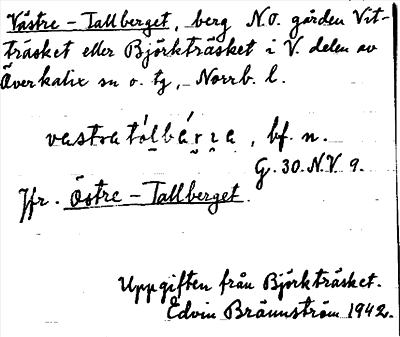 Västre - Tallberget, berg N.O. gården Vit-
träsket eller Björkträsket i V. delen av
Överkalix sn o. tg, Norrb. l.
bf. n.
G. 30. N.V. 9.
Jfr. Östre - Tallberget.
Uppgiften från Björkträsket.
Edvin Brännström 1942.